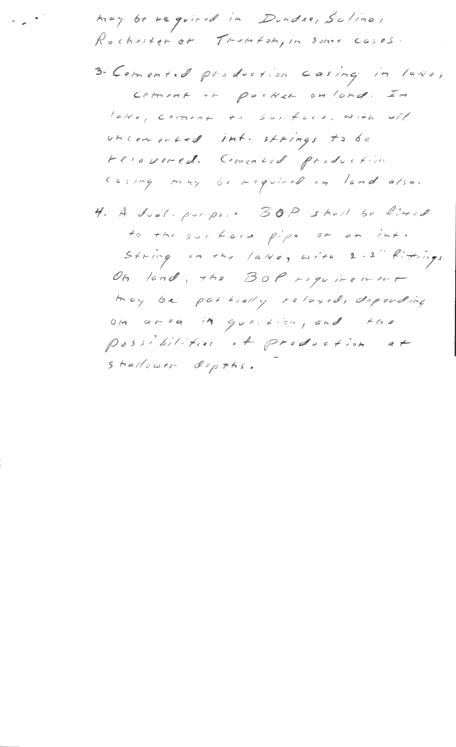 may be required in Dundee, Salina,
Rochester or Trenton, in some cases.
3. Cemented production casing in lake,
cement or packer on land. In
lake, cement to surface, with all
uncemented int. strings to be
recovered. Cemented production
casing may be required on land also.
4. A dual-purpose BOP shall be fitted
to the surface pipe or an int.
string on the lake, with 2-2" fittings.
On land, the BOP requirement
may be partially relaxed, depending
on area in question, and the
possibilities of production at
shallower depths.